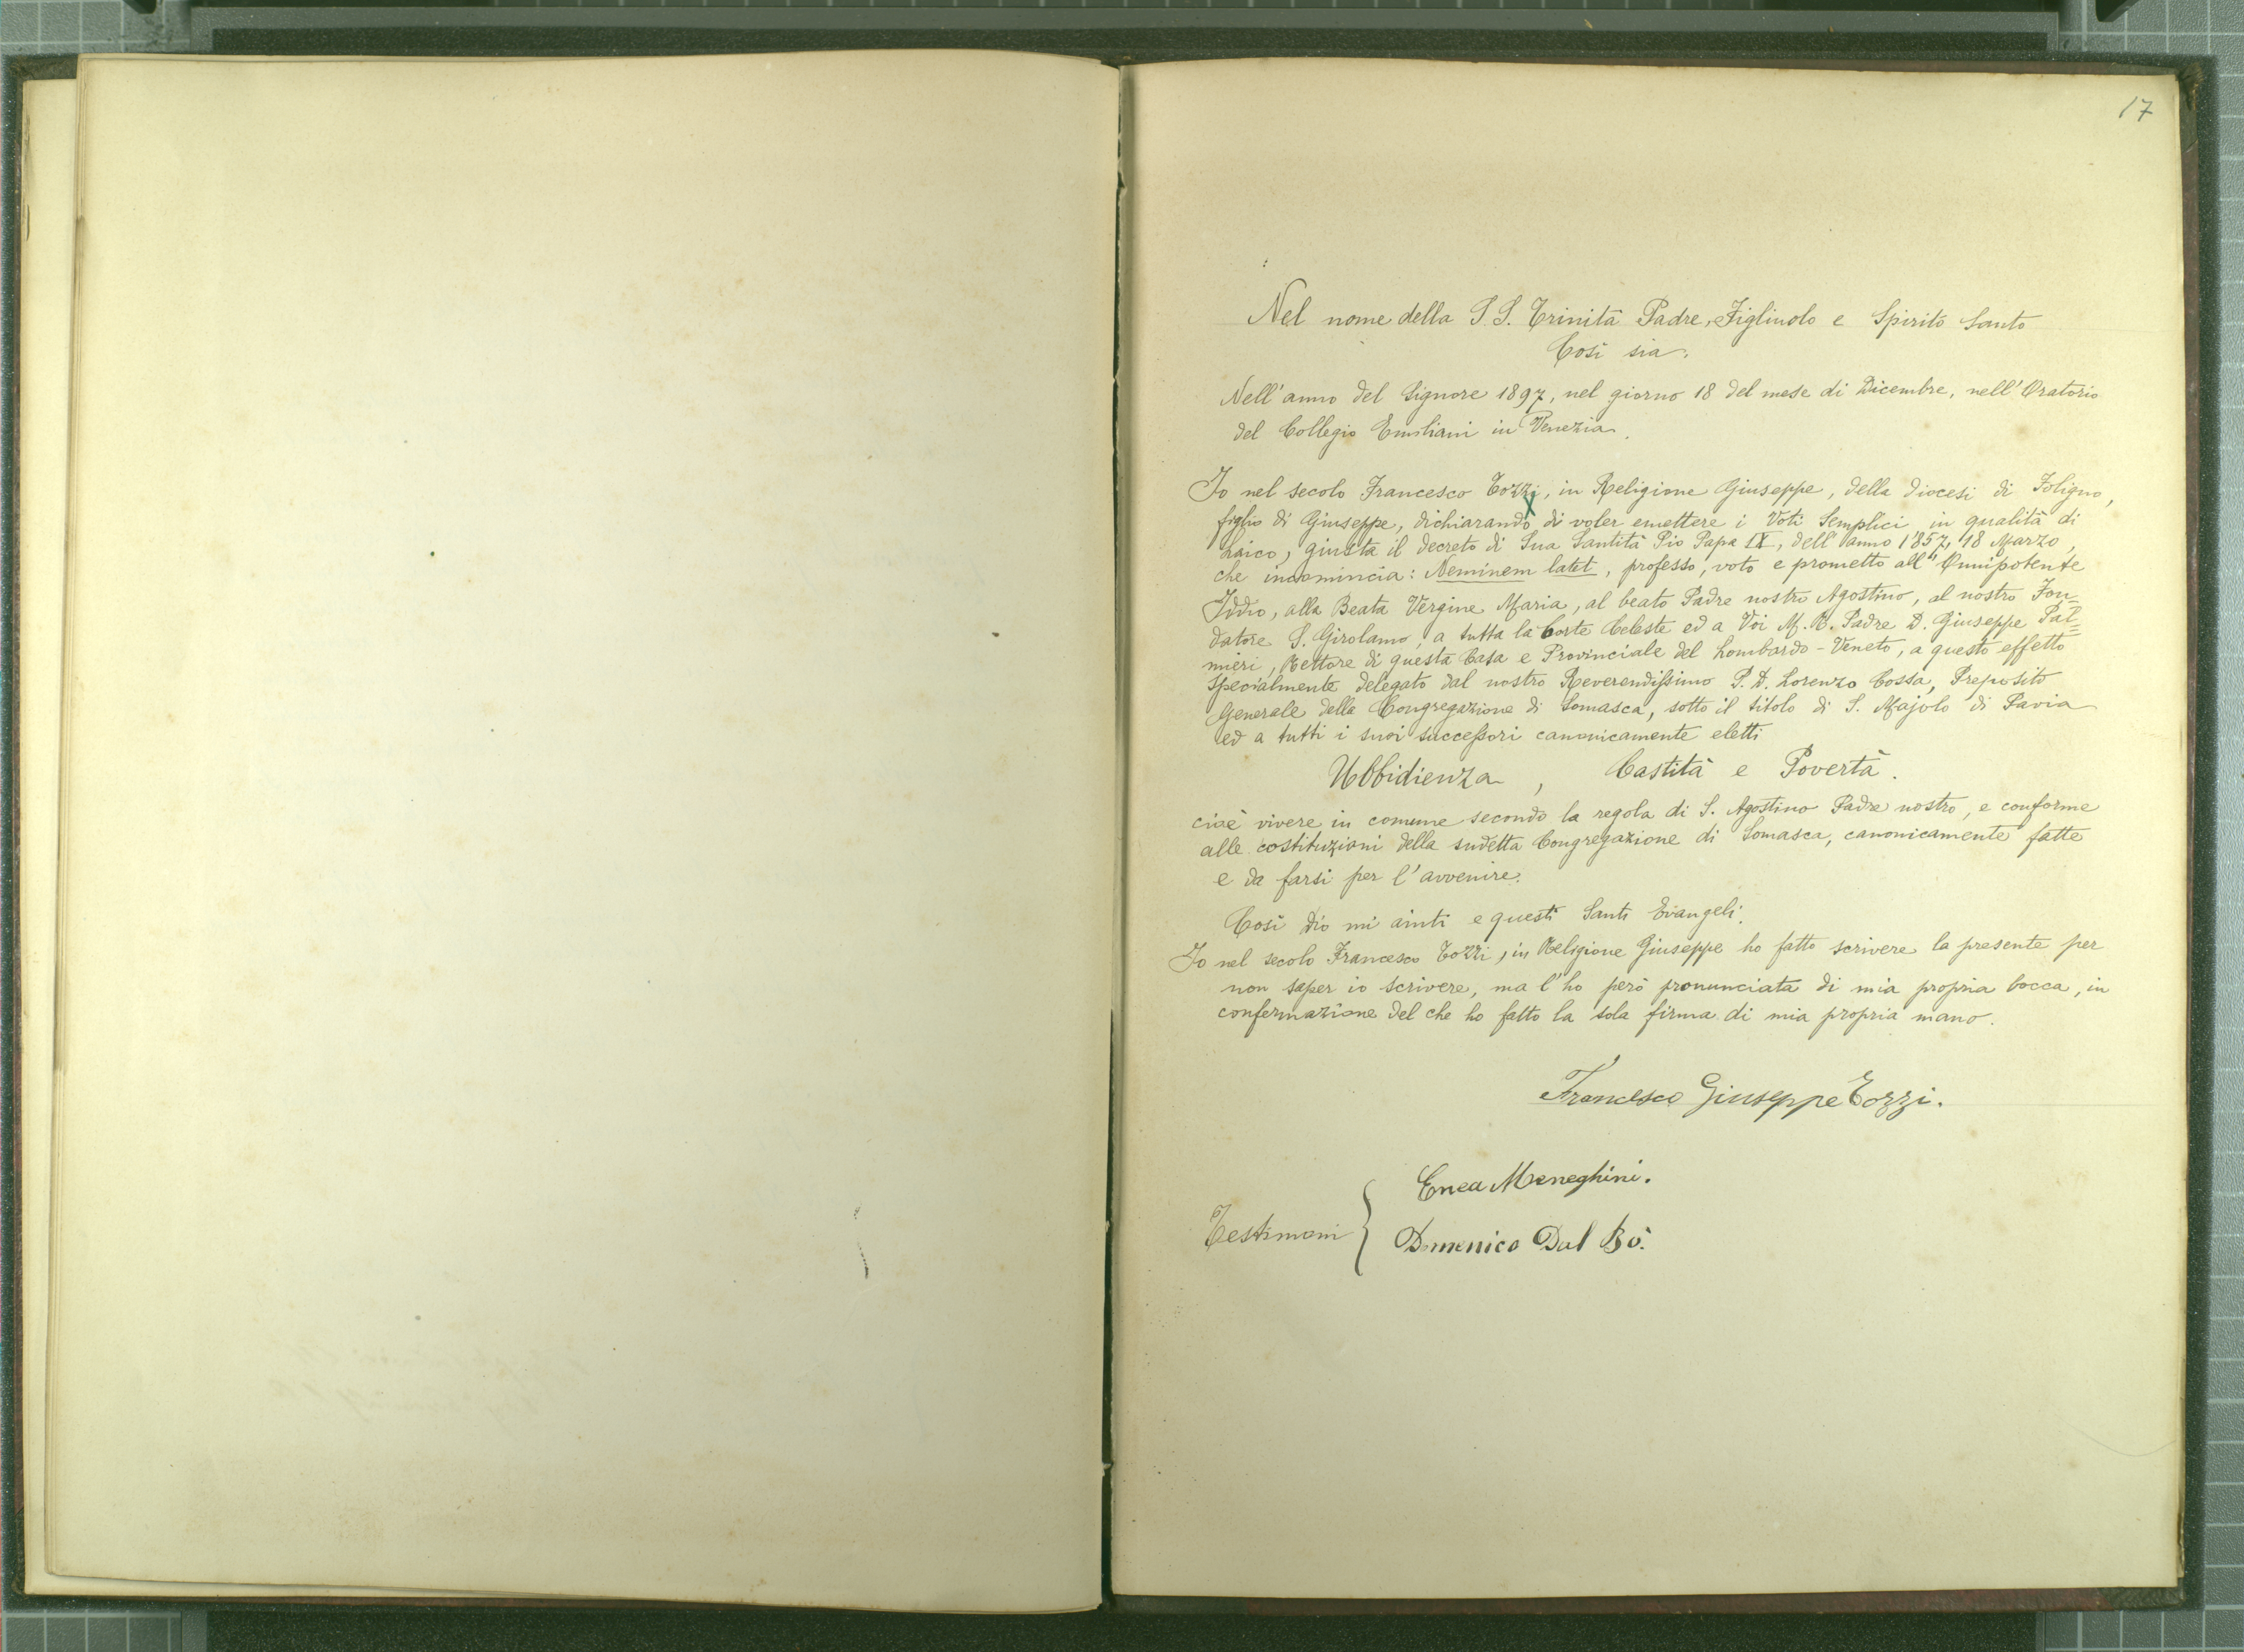 17
Nel nome della S. S. Trinità Padre, Figliuolo e Spirito Santo
Così sia.
Nell'anno del Signore 1897, nel giorno 18 del mese di Dicembre, nell'Oratorio
del Collegio Emiliani in Venezia.
Io nel secolo Francesco Tozzi, in Religione Giuseppe, della diocesi di Foligno,
figlio di Giuseppe, dichiarando di voler emettere i Voti Semplici in qualità di
Laico, giusta il decreto di Sua Santità Pio Papa IX, dell'anno 1857, 18 Marzo,
che incomincia: Neminem latet, professo, voto e prometto all'Onnipotente
Iddio, alla Beata Vergine Maria, al beato Padre nostro Agostino, al nostro Fon=
datore S. Girolamo, a tutta la Corte Celeste ed a Voi M. R. Padre D. Giuseppe Pal=
mieri, Rettore di questa Casa e Provinciale del Lombardo-Veneto, a questo effetto
specialmente delegato dal nostro Reverendissimo P. D. Lorenzo Cossa, Preposito
Generale della Congregazione di Somasca, sotto il titolo di S. Majolo di Pavia
ed a tutti i suoi successori canonicamente eletti
Ubbidienza, Castità e Povertà.
cioè vivere in comune secondo la regola di S. Agostino Padre nostro, e conforme
alle costituzioni della sudetta Congregazione di Somasca, canonicamente fatte
e da farsi per l'avvenire.
Così Dio mi aiuti e questi Santi Evangeli.
Io nel secolo Francesco Tozzi, in Religione Giuseppe ho fatto scrivere la presente per
non saper io scrivere, ma l'ho però pronunciata di mia propria bocca, in
confermazione del che ho fatto la sola firma di mia propria mano.
Francesco Giuseppe Tozzi.
Enea Meneghini.
Testimoni
Domenico Dal Bò.